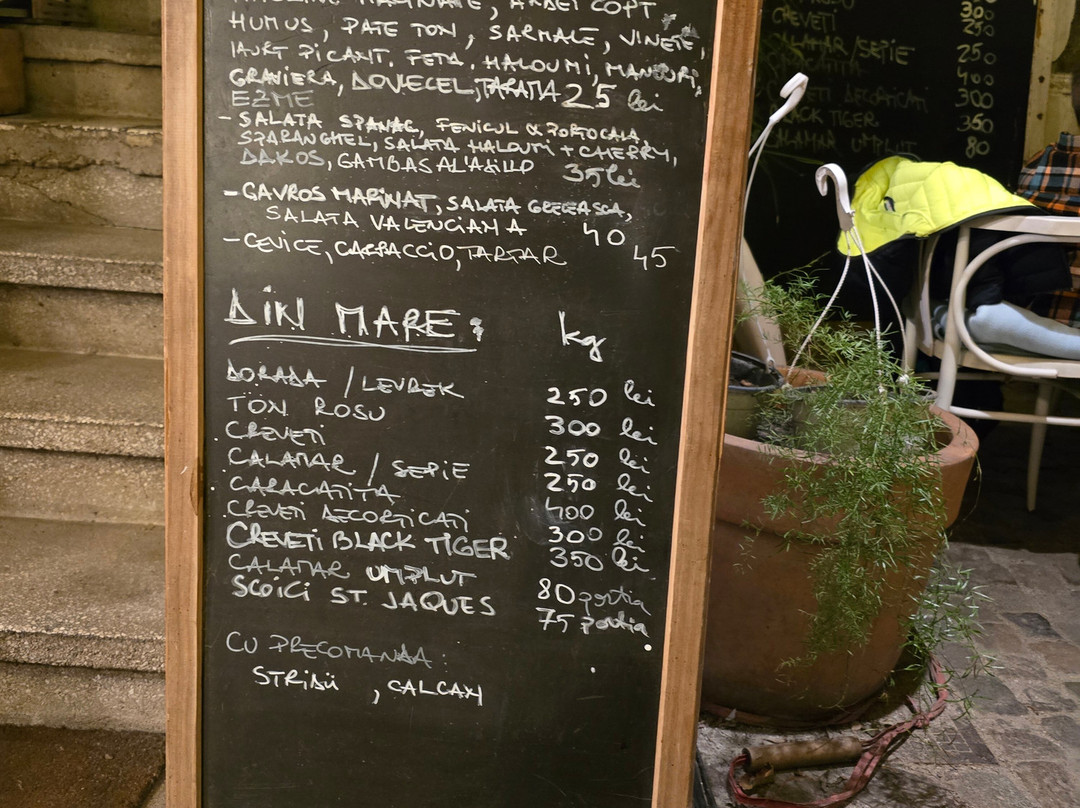 MARINATE, ARDEI COPT,
HUMUS, PATE TON, SARMALE, VINETE,
IAURT PICANT, FETA, HALOUMI, MANOURI,
GRAVIERA, DOVLECEL, TARAMA 25 lei
EZME
- SALATA SPANAC, FENICUL & PORTOCALA,
SPARANGHEL, SALATA HALOUMI + CHERRY,
DAKOS, GAMBAS AL AJILLO 35 lei
- GAVROS MARINAT, SALATA GRECEASCA,
SALATA VALENCIANA 40
- CEVICE, CARPACCIO, TARTAR 45
DIN MARE: kg
DORADA / LEVREK 250 lei
TON ROSU 300 lei
CREVETI 250 lei
CALAMAR / SEPIE 250 lei
CARACATITA 400 lei
CREVETI DECORTICATI 300 lei
CREVETI BLACK TIGER 350 lei
CALAMAR UMPLUT 80 portia
SCOICI ST. JAQUES 75 portia
CU PRECOMANDA:
STRIDII, CALCAN
300
CREVETI 250
CALAMAR / SEPIE 250
CARACATITA 400
CREVETI DECORTICATI 300
BLACK TIGER 350
CALAMAR UMPLUT 80